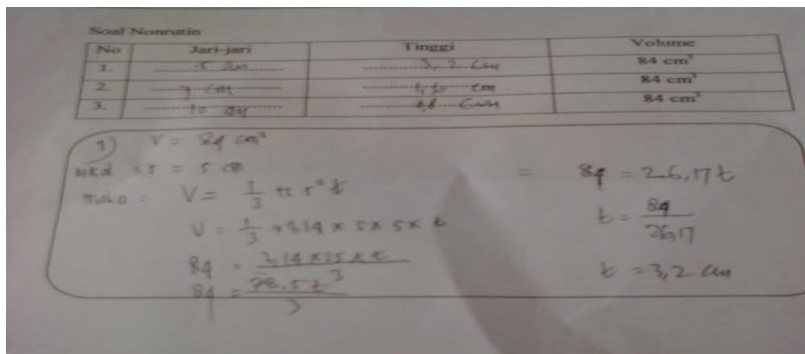 Soal Nonrutin
No Jari-jari Tinggi Volume
1. 5 cm 3,2 cm 84 cm³
2. 7 cm cm 84 cm³
3. 10 cm cm 84 cm³
1) V = 84 cm³
r = 5 cm
V = 1/3 π r² t
V = 1/3 × 3,14 × 5 × 5 × t
84 = 3,14 × 25 × t / 3
84 = 78,5 t / 3
= 84 = 26,17 t
t = 84 / 26,17
t = 3,2 cm